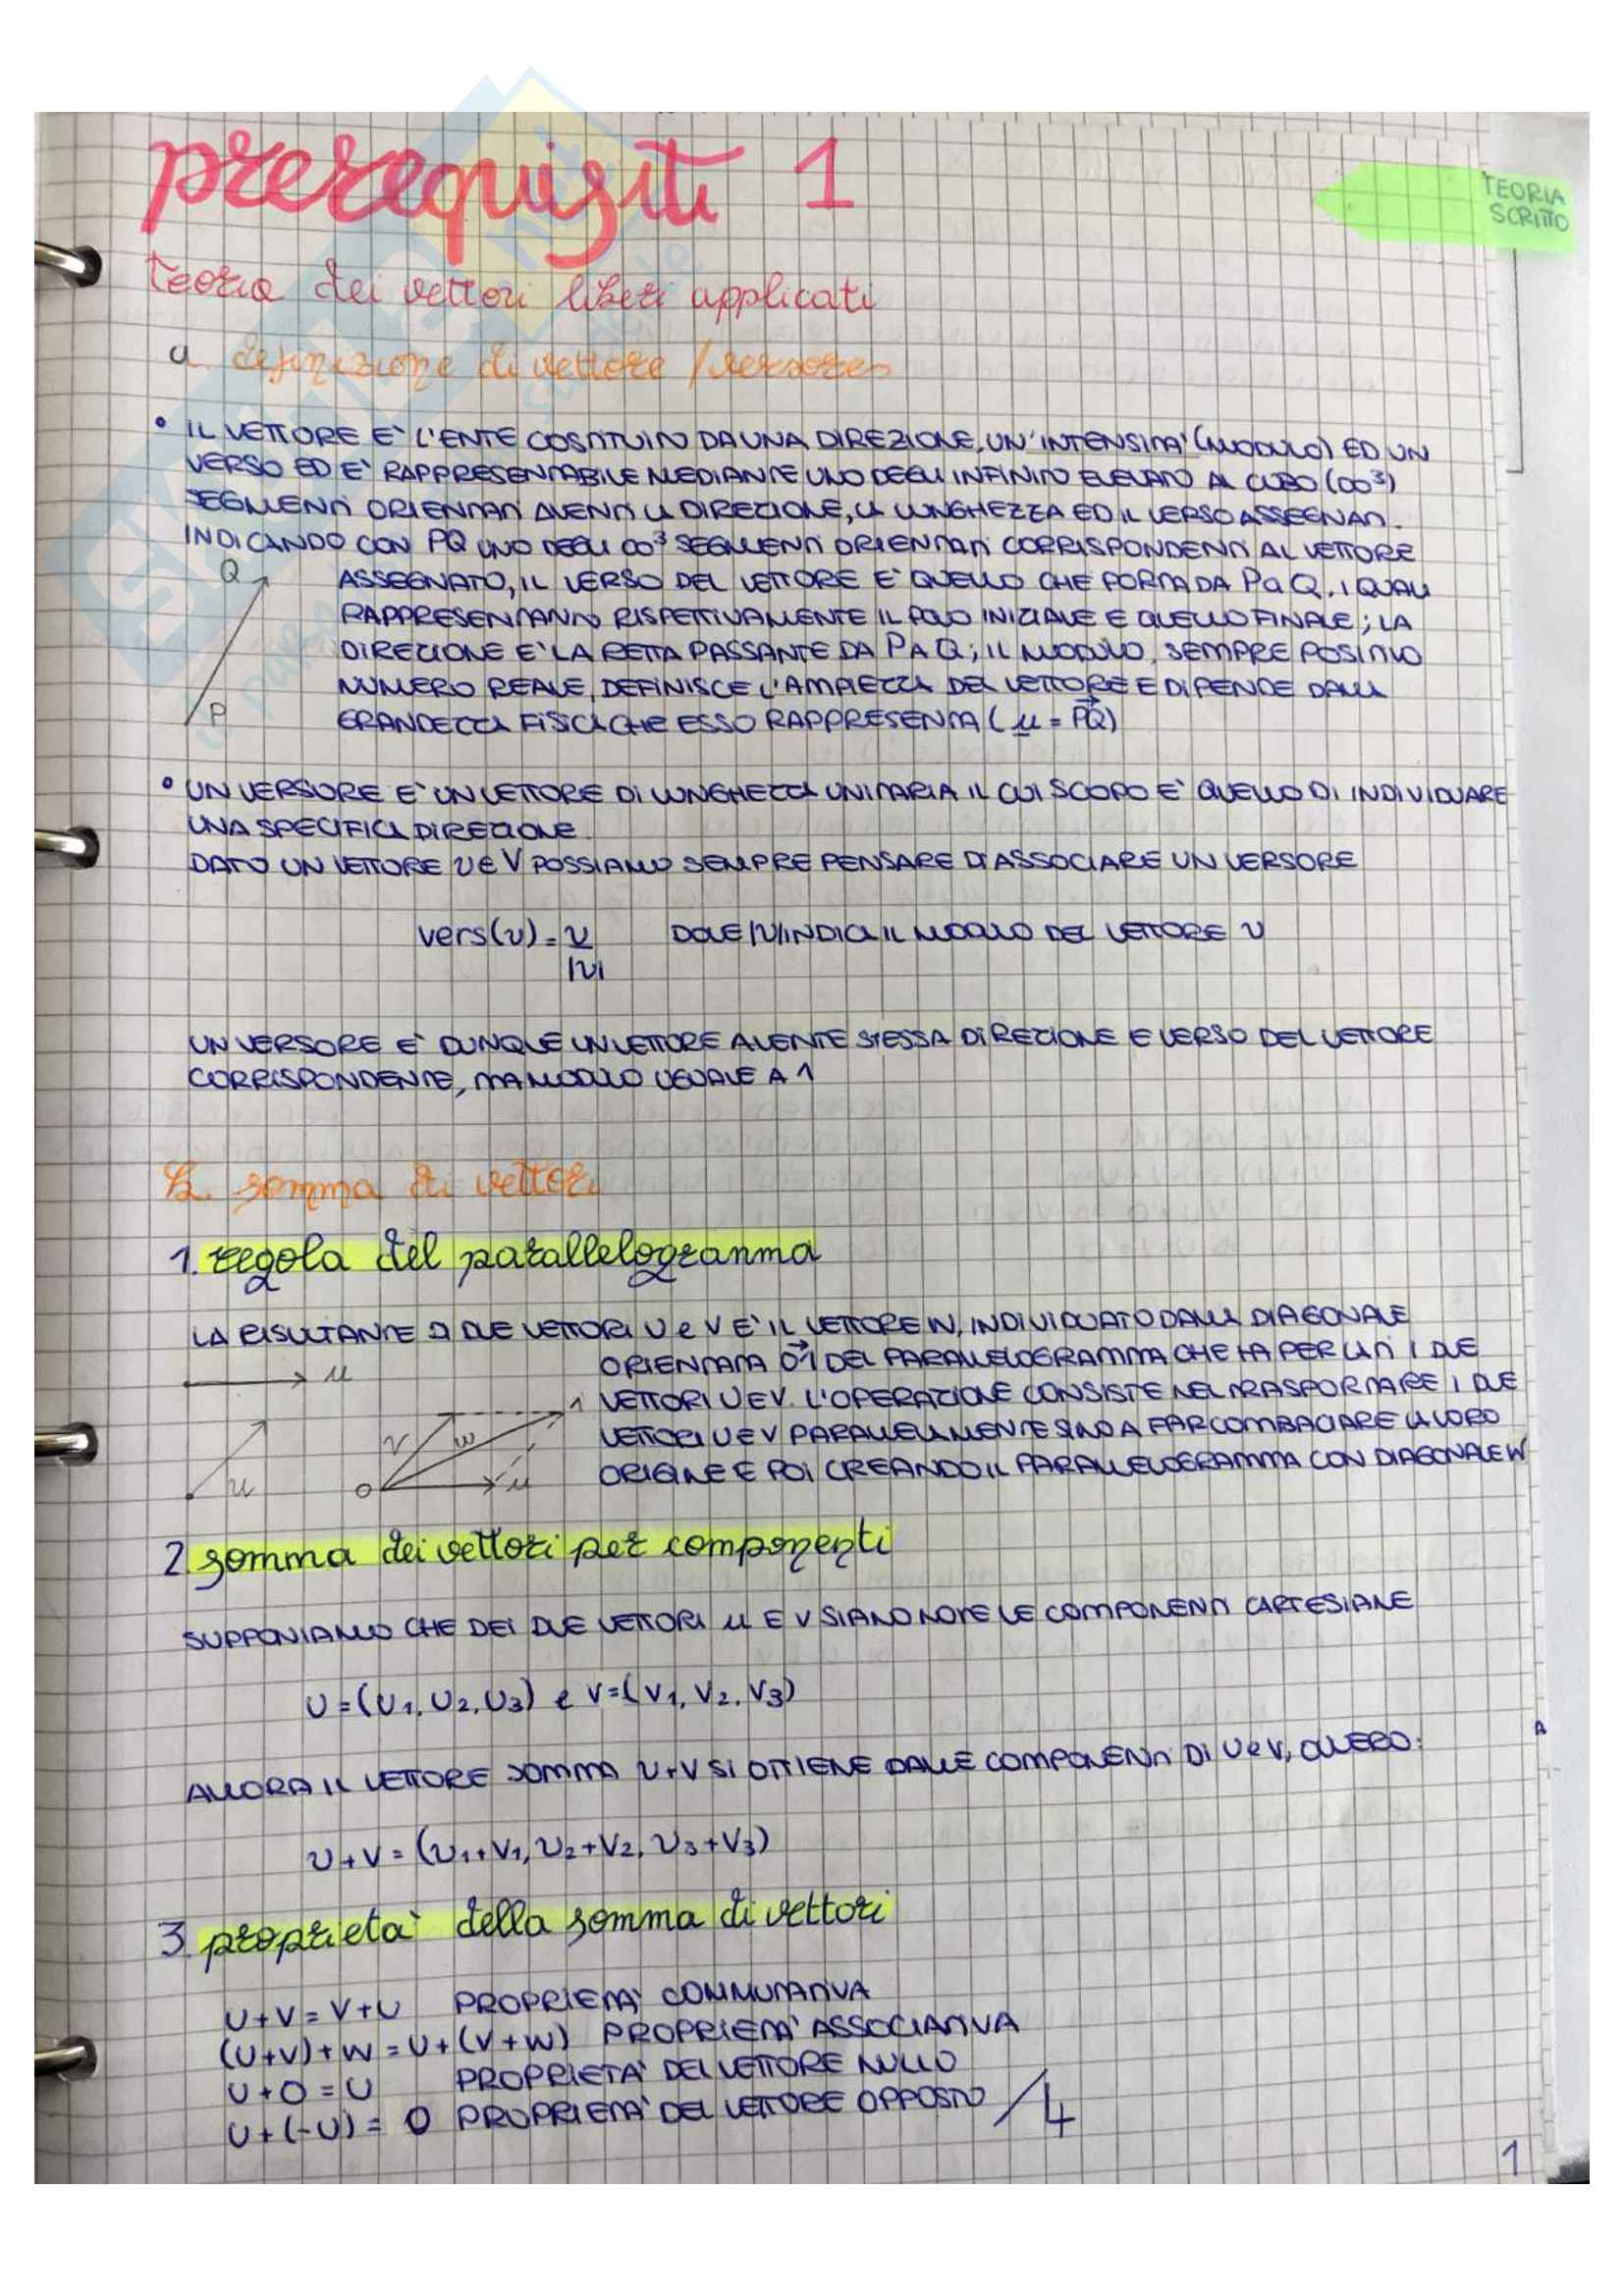 prerequisiti 1
TEORIA
SCRITTO
teoria dei vettori liberi applicati
a. definizione di vettore / versore
• IL VETTORE E' L'ENTE COSTITUITO DA UNA DIREZIONE, UN'INTENSITA' (MODULO) ED UN
VERSO ED E' RAPPRESENTABILE MEDIANTE UNO DEGLI INFINITO ELEVATO AL CUBO (∞³)
SEGMENTI ORIENTATI AVENTI LA DIREZIONE, LA LUNGHEZZA ED IL VERSO ASSEGNATI.
INDICANDO CON PQ UNO DEGLI ∞³ SEGMENTI ORIENTATI CORRISPONDENTI AL VETTORE
ASSEGNATO, IL VERSO DEL VETTORE E' QUELLO CHE PORTA DA P a Q, I QUALI
RAPPRESENTANO RISPETTIVAMENTE IL POLO INIZIALE E QUELLO FINALE; LA
DIREZIONE E' LA RETTA PASSANTE DA P A Q; IL MODULO, SEMPRE POSITIVO
NUMERO REALE, DEFINISCE L'AMPIEZZA DEL VETTORE E DIPENDE DALLA
GRANDEZZA FISICA CHE ESSO RAPPRESENTA (u = PQ)
Q
P
• UN VERSORE E' UN VETTORE DI LUNGHEZZA UNITARIA IL CUI SCOPO E' QUELLO DI INDIVIDUARE
UNA SPECIFICA DIREZIONE.
DATO UN VETTORE v e V POSSIAMO SEMPRE PENSARE DI ASSOCIARE UN VERSORE
vers(v) = v DOVE |v| INDICA IL MODULO DEL VETTORE v
|v|
UN VERSORE E' DUNQUE UN VETTORE AVENTE STESSA DIREZIONE E VERSO DEL VETTORE
CORRISPONDENTE, MA MODULO UGUALE A 1
b. somma di vettori
1. regola del parallelogramma
LA RISULTANTE DI DUE VETTORI U e V E' IL VETTORE W, INDIVIDUATO DALLA DIAGONALE
ORIENTATA 01 DEL PARALLELOGRAMMA CHE HA PER LATI I DUE
VETTORI U E V. L'OPERAZIONE CONSISTE NEL TRASPORTARE I DUE
VETTORI U E V PARALLELAMENTE SINO A FAR COMBACIARE LA LORO
ORIGINE E POI CREANDO IL PARALLELOGRAMMA CON DIAGONALE W
u
u
v w 1
O u
2. somma dei vettori per componenti
SUPPONIAMO CHE DEI DUE VETTORI u E V SIANO NOTE LE COMPONENTI CARTESIANE
U = (U1, U2, U3) e V = (V1, V2, V3)
ALLORA IL VETTORE SOMMA U+V SI OTTIENE DALLE COMPONENTI DI U e V, OVVERO:
U+V = (U1+V1, U2+V2, U3+V3)
3. proprieta' della somma di vettori
U+V = V+U PROPRIETA' COMMUTATIVA
(U+V)+W = U+(V+W) PROPRIETA' ASSOCIATIVA
U+O = U PROPRIETA' DEL VETTORE NULLO
U+(-U) = O PROPRIETA' DEL VETTORE OPPOSTO /4
1